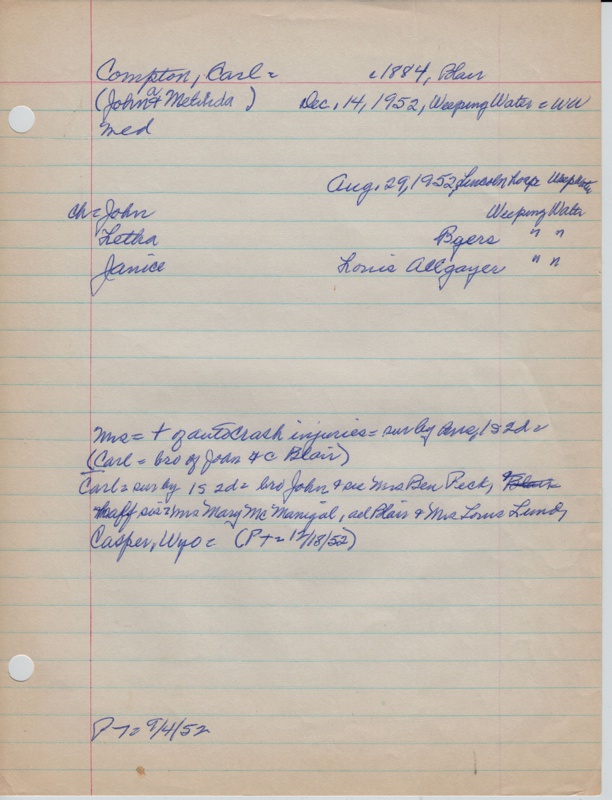 Compton, Carl = c1884, Blair
(John a & Melinda ) Dec. 14, 1952, Weeping Water = WW
med
Aug. 29, 1952, Lincoln hosp
ch = John Weeping Water
Letha Bgers " "
Janice Louis Allgayer " "
Mrs = + of autocrash injuries = sur by hus, 1s 2d =
(Carl = bro of John & C Blair)
Carl = sur by 1s 2d = bro John & sis Mrs Ben Peck, & Blair
half sis = Mrs Mary McManigal, all Blair & Mrs Louis Lund,
Casper, Wyo = (PT = 12/18/52)
PT = 9/4/52